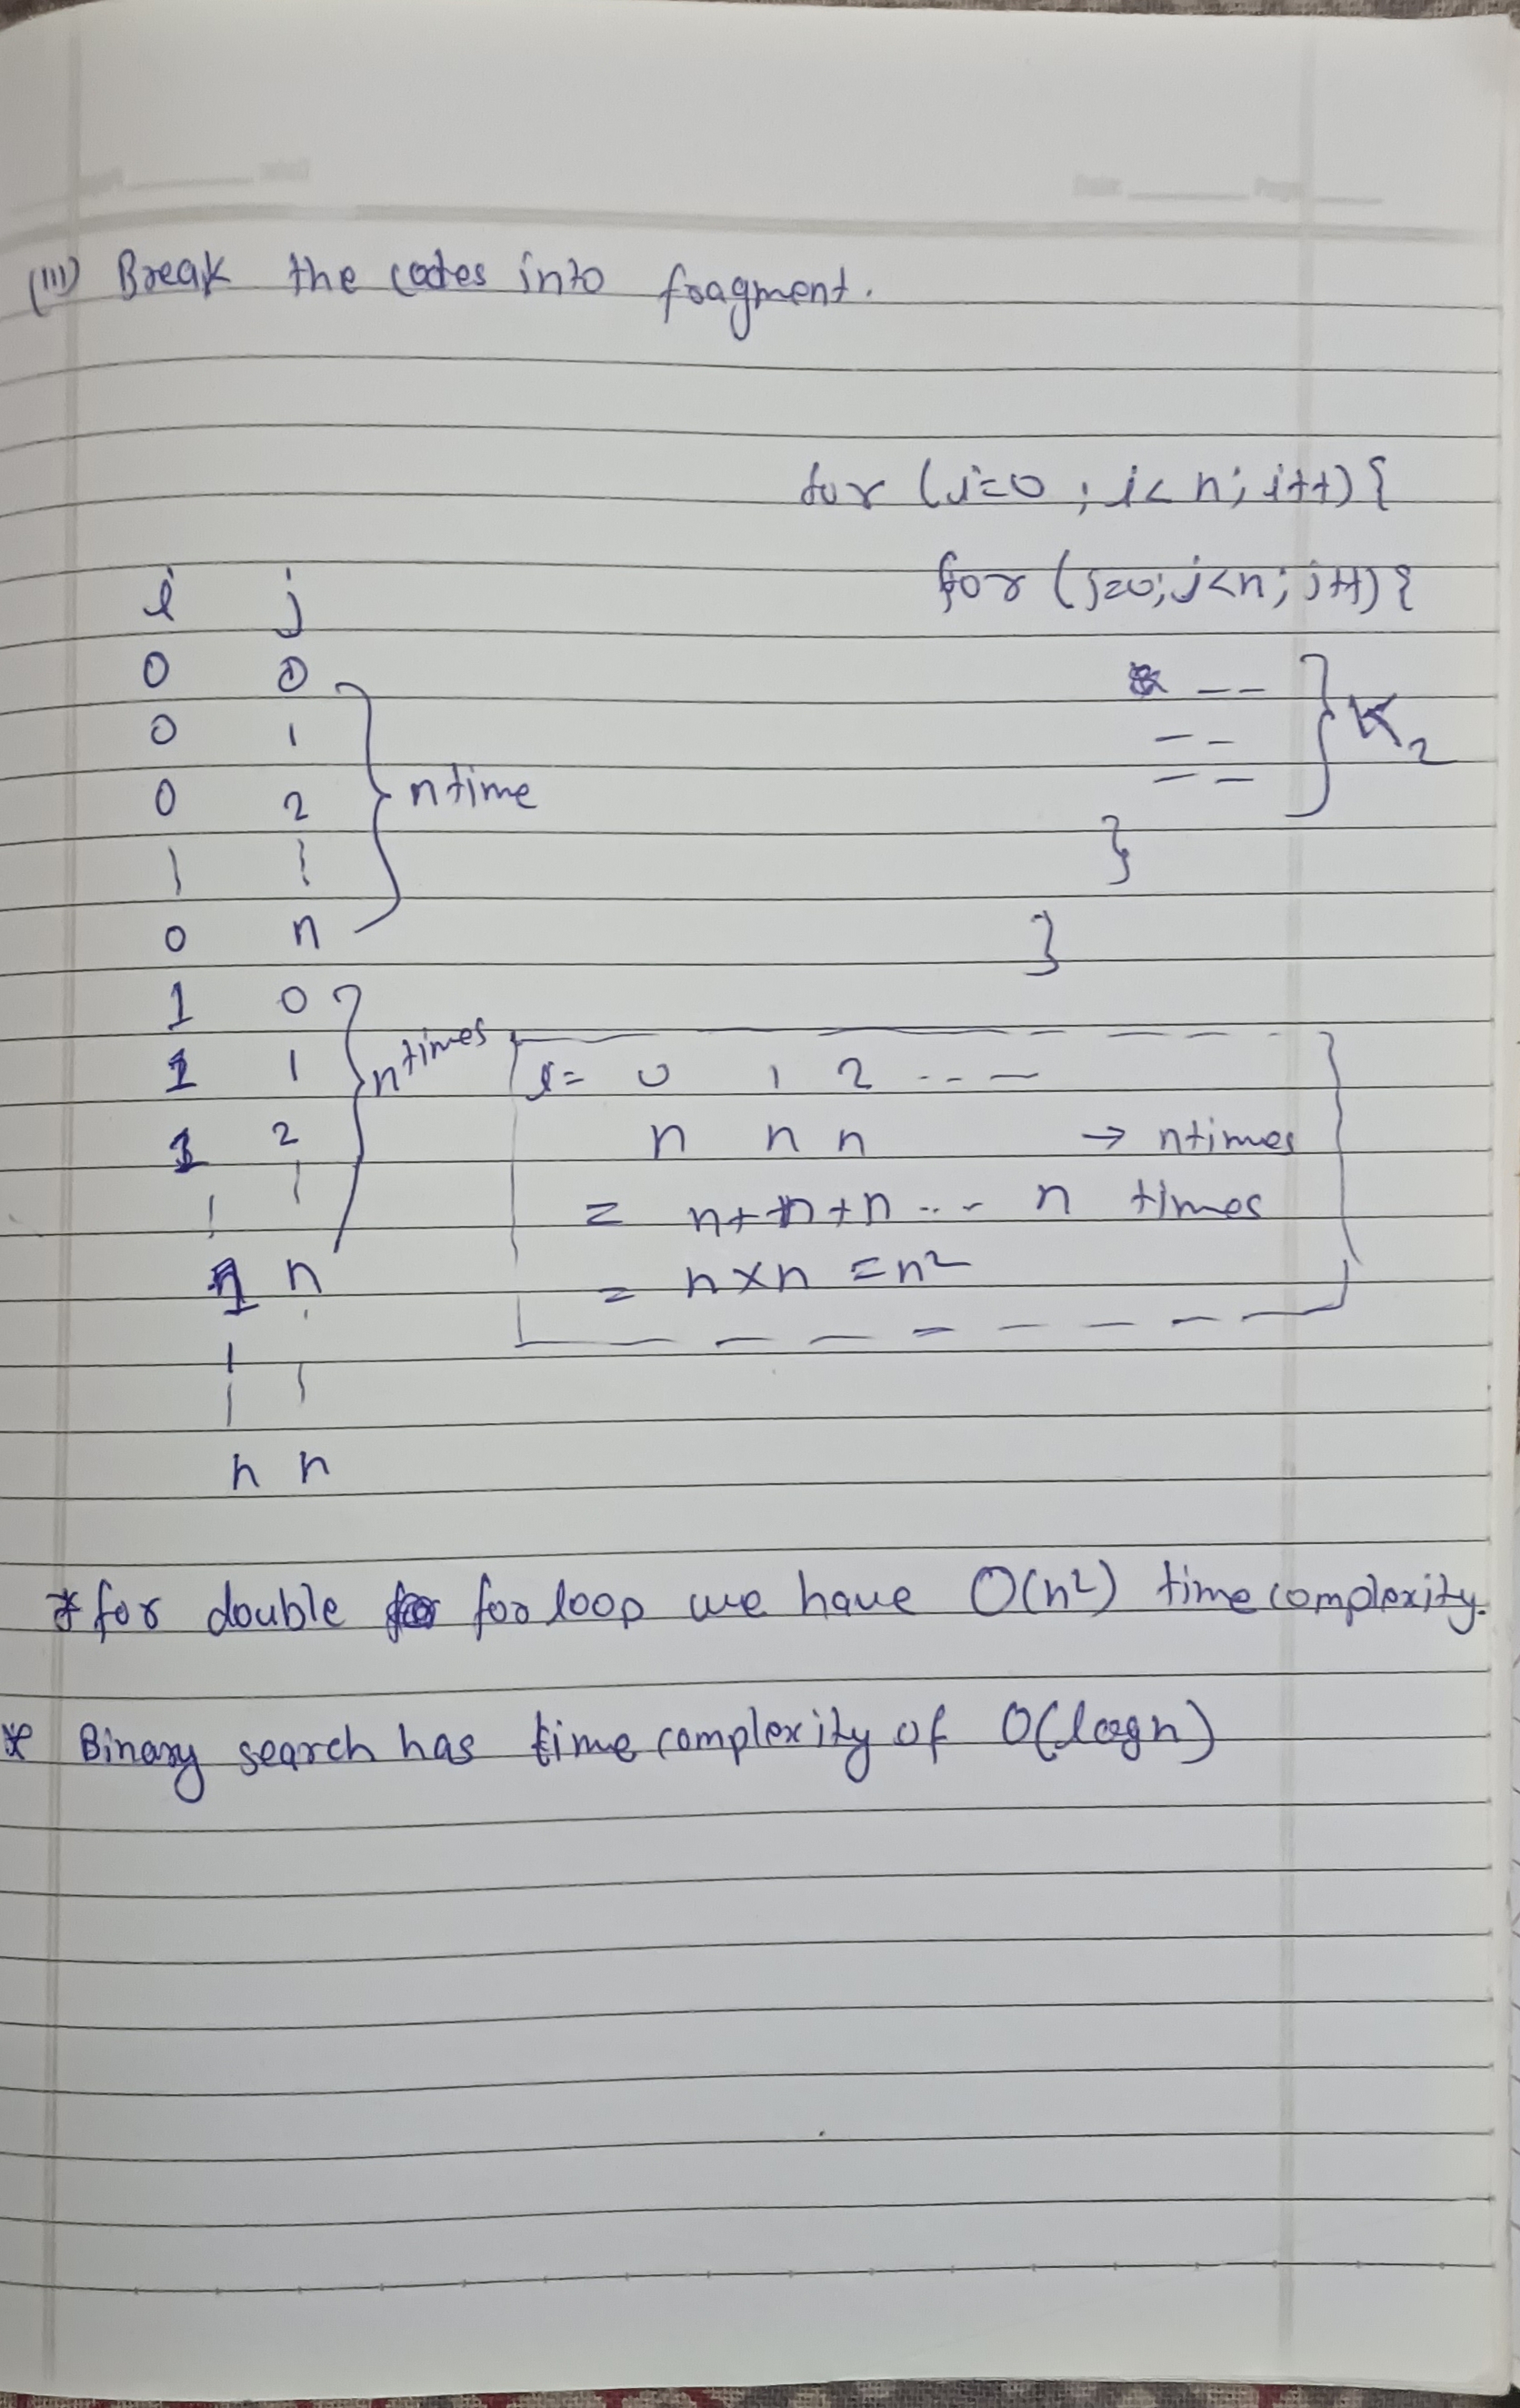 (III) Break the codes into fragment.
for (i=0; i<n; i++) {
for (j=0; j<n; j++) {
K2
}
}
i j
0 0
0 1
0 2
0 n
n time
1 0
1 1
1 2
1 n
n times
n n
i= 0 1 2 ---
n n n → n times
= n+n+n... n times
= n×n = n²
* for double for loop we have O(n²) time complexity.
* Binary search has time complexity of O(logn)